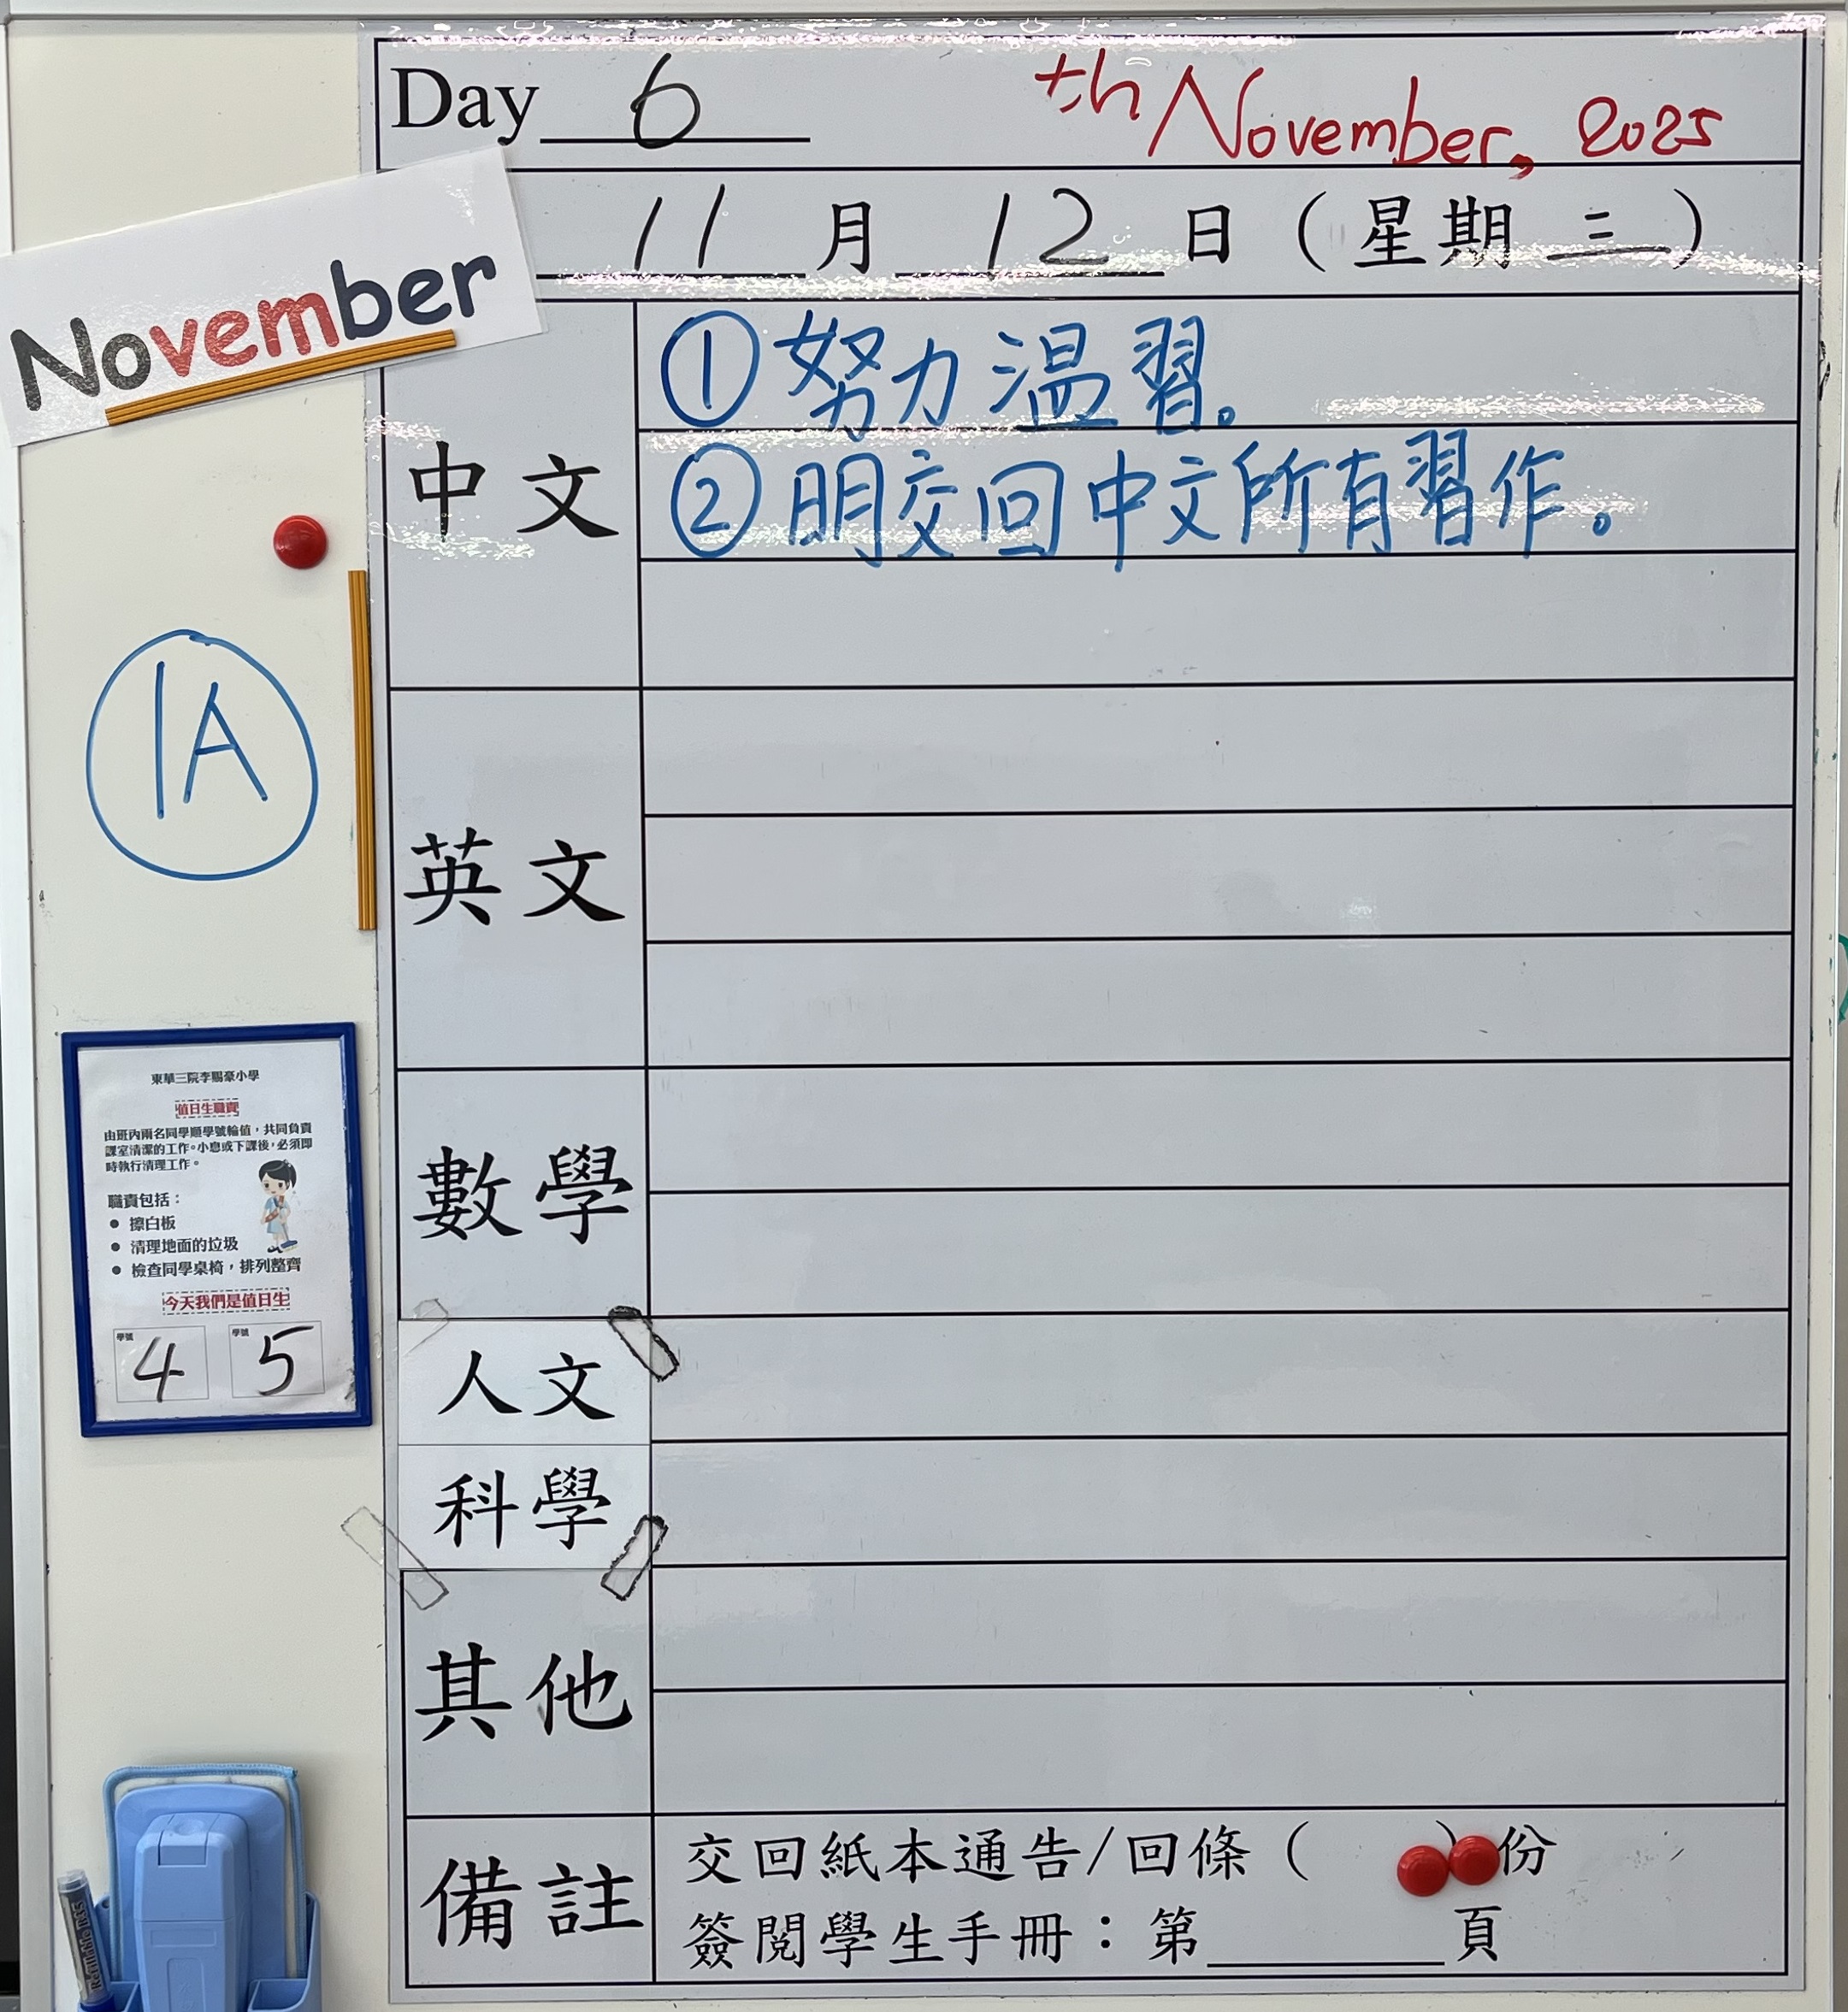 Day 6 th November, 2025
11 月 12 日 ( 星期 三 )
November
中文
① 努力温習。
② 明交回中文所有習作。
1A
英文
數學
人文
科學
其他
備註
交回紙本通告/回條 ( ) 份
簽閱學生手冊：第 頁
東華三院李賜豪小學
值日生職責
由班內兩名同學順學號輪值，共同負責
課室清潔的工作。小息或下課後，必須即
時執行清理工作。
職責包括：
● 擦白板
● 清理地面的垃圾
● 檢查同學桌椅，排列整齊
今天我們是值日生
學號 4 學號 5